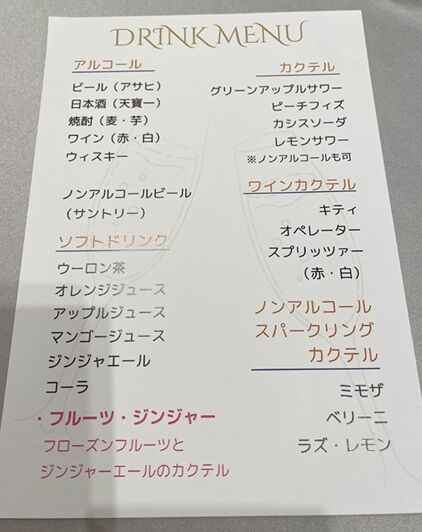 DRINK MENU
アルコール
ビール（アサヒ）
日本酒（天寶一）
焼酎（麦・芋）
ワイン（赤・白）
ウィスキー
ノンアルコールビール
（サントリー）
ソフトドリンク
ウーロン茶
オレンジジュース
アップルジュース
マンゴージュース
ジンジャエール
コーラ
・フルーツ・ジンジャー
フローズンフルーツと
ジンジャーエールのカクテル
カクテル
グリーンアップルサワー
ピーチフィズ
カシスソーダ
レモンサワー
※ノンアルコールも可
ワインカクテル
キティ
オペレーター
スプリッツァー
（赤・白）
ノンアルコール
スパークリング
カクテル
ミモザ
ベリーニ
ラズ・レモン